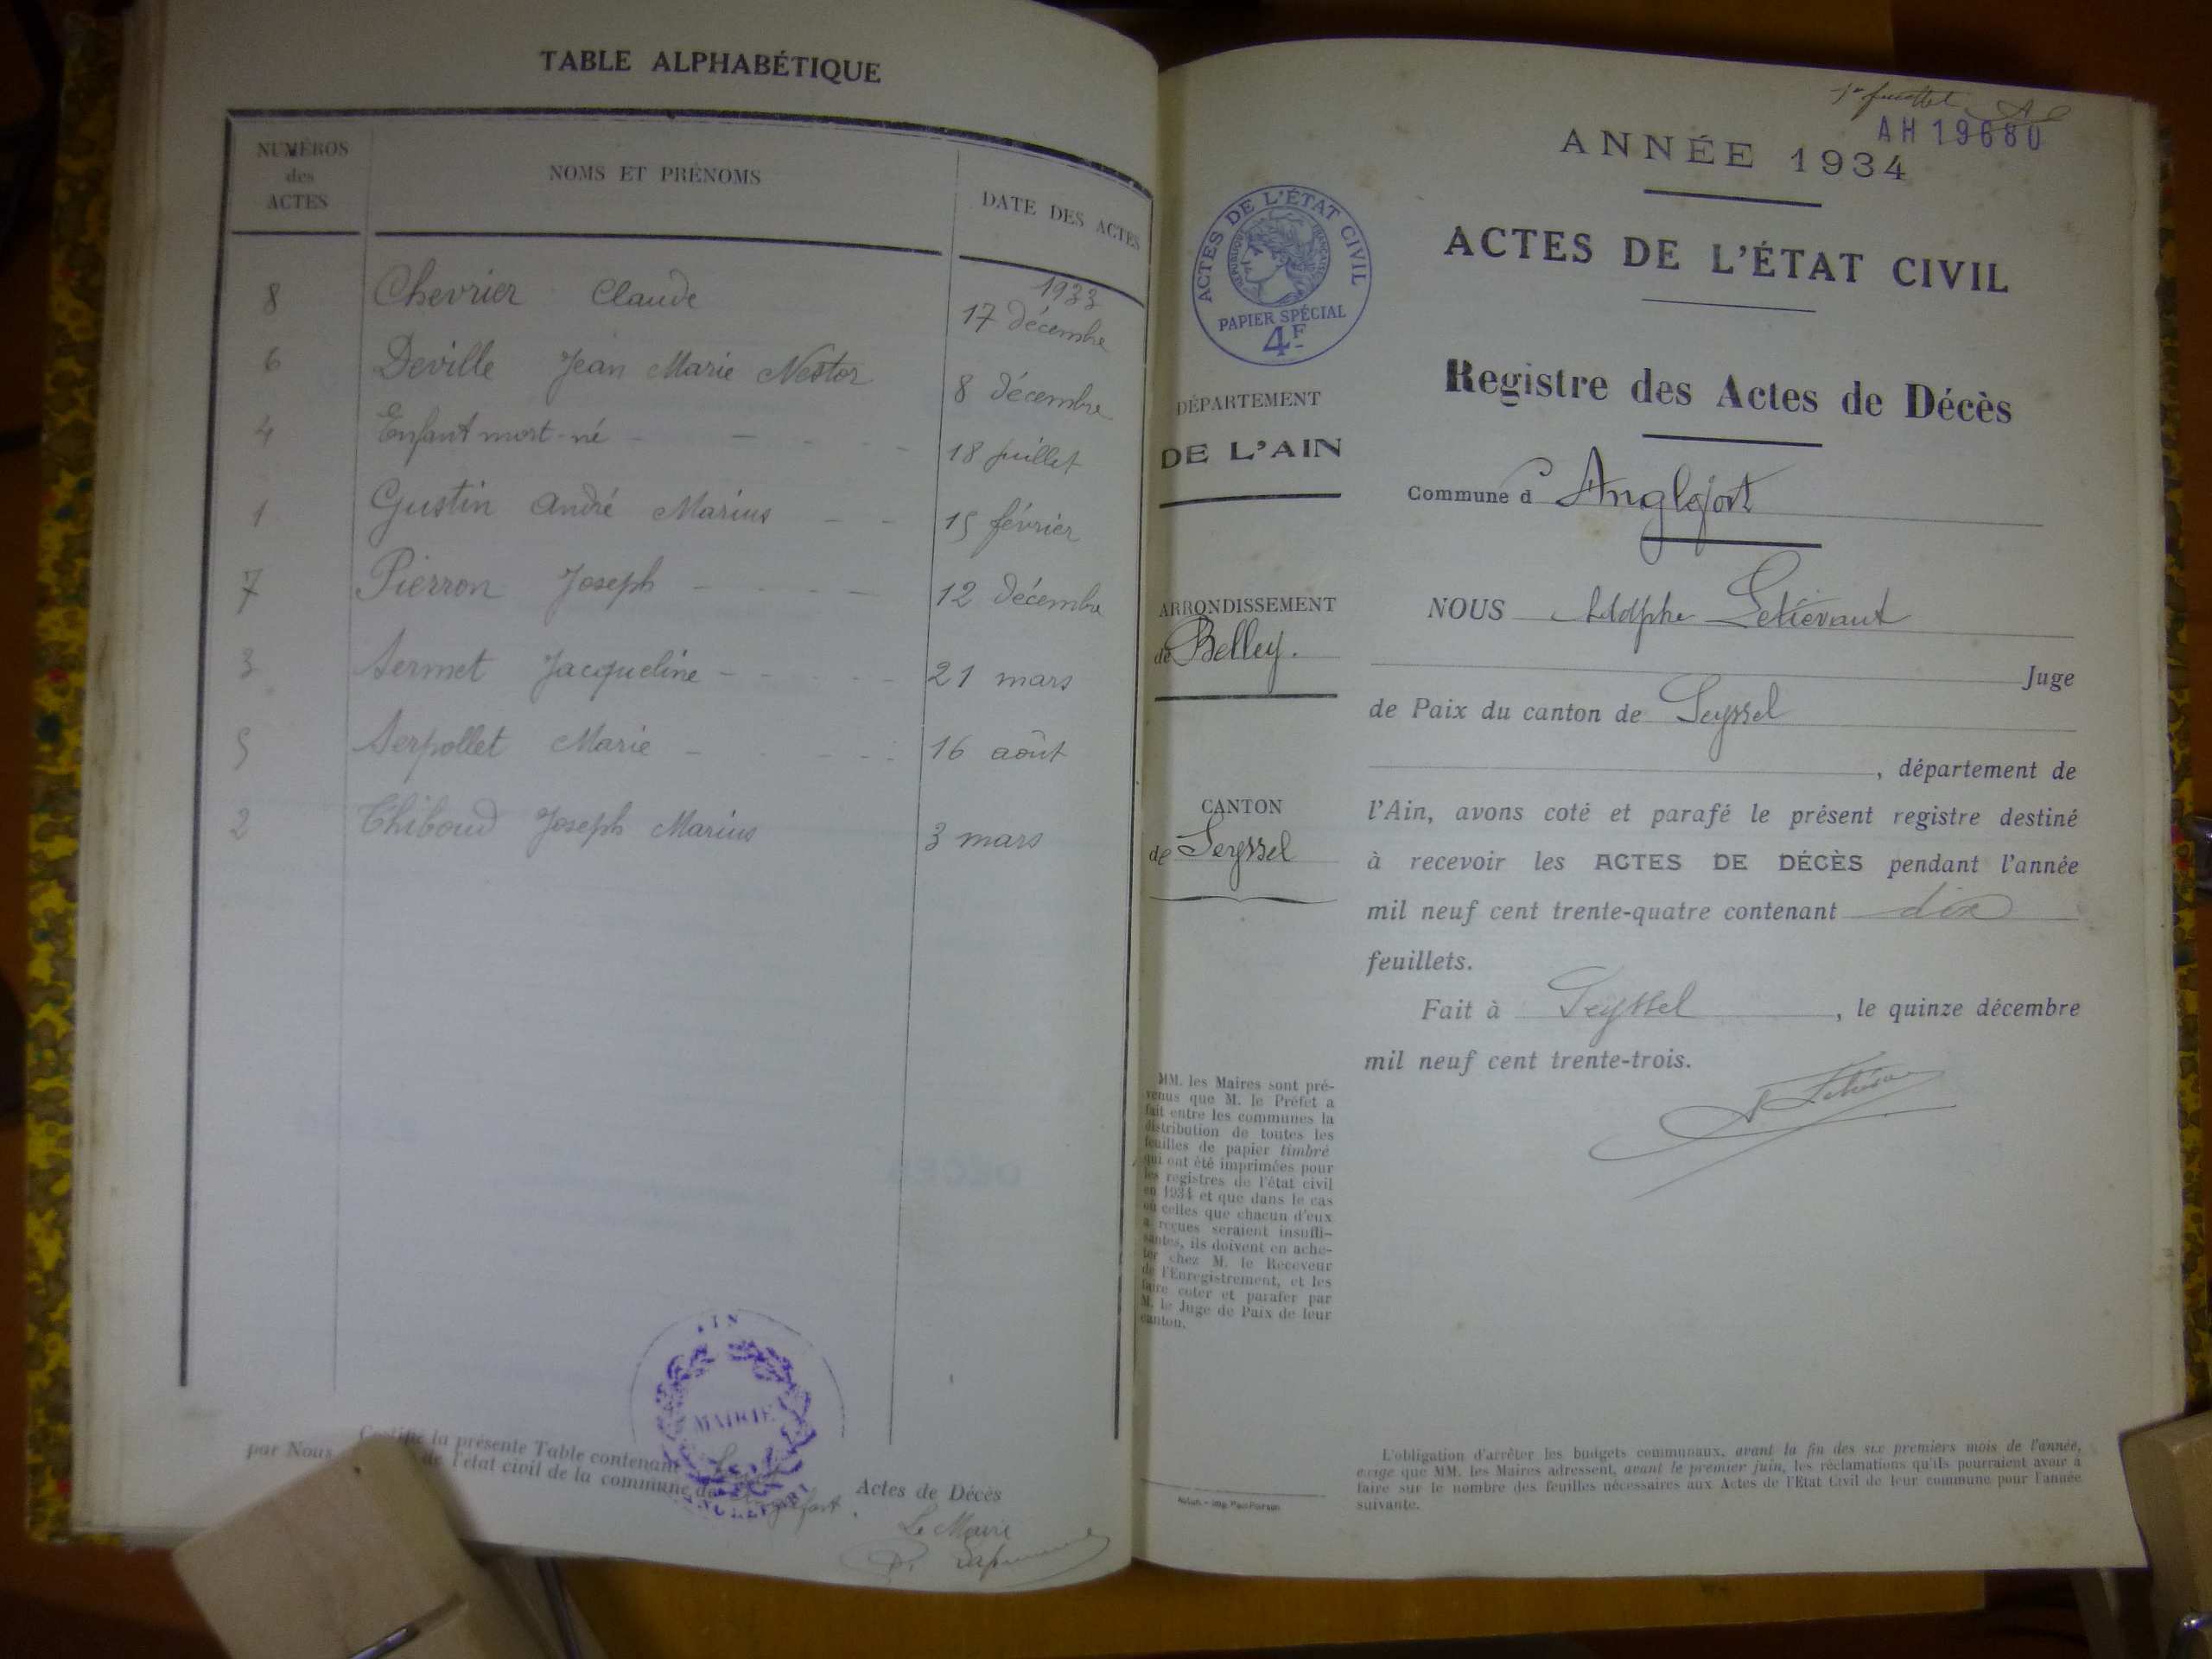 TABLE ALPHABÉTIQUE
NUMÉROS des ACTES
NOMS ET PRÉNOMS
DATE DES ACTES
1933
8 Chevrier Claude 17 décembre
6 Deville Jean Marie Nestor 8 décembre
4 Enfant mort-né 18 juillet
1 Gustin André Marius 15 février
7 Pierron Joseph 12 décembre
3 Sermet Jacqueline 21 mars
5 Serpollet Marie 16 août
2 Thiboud Joseph Marius 3 mars
la présente Table contenant Actes de Décès
par Nous de l'état civil de la commune de Anglefort.
Le Maire
MAIRIE
1er feuillet
AH 19680
ANNÉE 1934
ACTES DE L'ÉTAT CIVIL
RÉPUBLIQUE FRANÇAISE
PAPIER SPÉCIAL
4F
ACTES DE L'ÉTAT CIVIL
Registre des Actes de Décès
DÉPARTEMENT
DE L'AIN
Commune d'Anglefort
ARRONDISSEMENT
de Belley.
CANTON
de Seyssel
NOUS Adolphe Letiévant
Juge
de Paix du canton de Seyssel
, département de
l'Ain, avons coté et parafé le présent registre destiné
à recevoir les ACTES DE DÉCÈS pendant l'année
mil neuf cent trente-quatre contenant dix
feuillets.
Fait à Seyssel, le quinze décembre
mil neuf cent trente-trois.
MM. les Maires sont pré-
venus que M. le Préfet a
fait entre les communes la
distribution de toutes les
feuilles de papier timbré
qui ont été imprimées pour
les registres de l'état civil
en 1934 et que dans le cas
où celles que chacun d'eux
a reçues seraient insuffi-
santes, ils doivent en ache-
ter chez M. le Receveur
de l'Enregistrement, et les
faire coter et parafer par
M. le Juge de Paix de leur
canton.
L'obligation d'arrêter les budgets communaux, avant la fin des six premiers mois de l'année,
exige que MM. les Maires adressent, avant le premier juin, les réclamations qu'ils pourraient avoir à
faire sur le nombre des feuilles nécessaires aux Actes de l'Etat Civil de leur commune pour l'année
suivante.